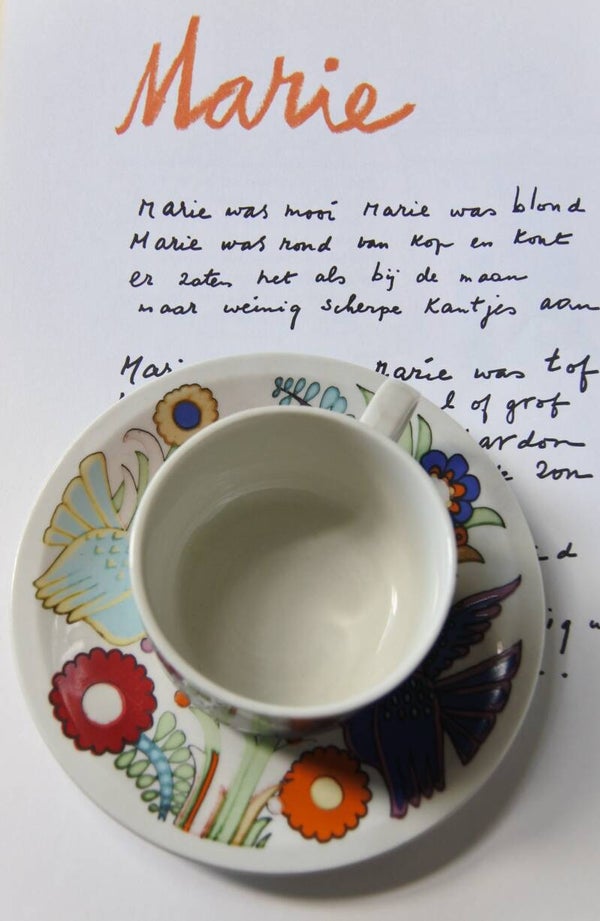 Marie
Marie was mooi Marie was blond
Marie was rond van kop en kont
er zaten net als bij de maan
maar weinig scherpe kantjes aan
Marie was tof
of grof
zon